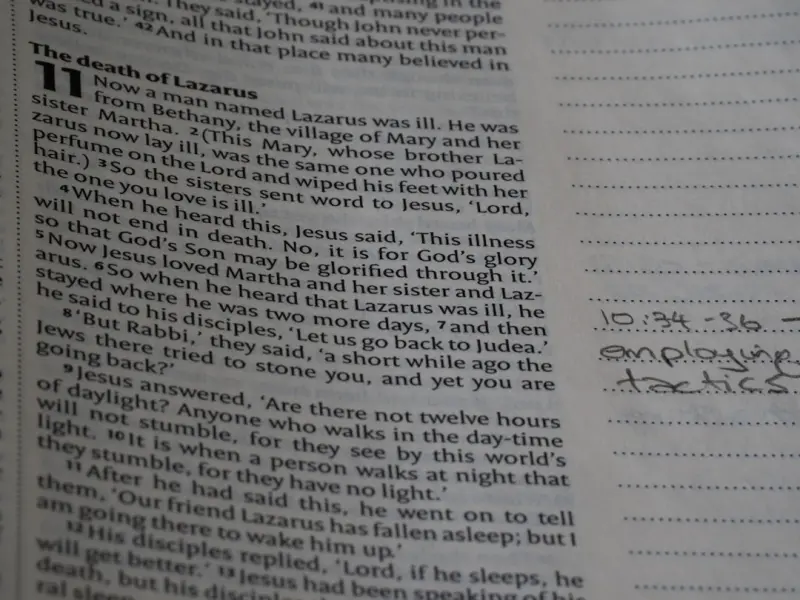 stayed, 41 and many people
a sign, They said, 'Though John never per-
a sign, all that John said about this man
was true.' 42 And in that place many believed in
Jesus.
The death of Lazarus
11 Now a man named Lazarus was ill. He was
from Bethany, the village of Mary and her
sister Martha. 2 (This Mary, whose brother La-
zarus now lay ill, was the same one who poured
perfume on the Lord and wiped his feet with her
hair.) 3 So the sisters sent word to Jesus, 'Lord,
the one you love is ill.'
4 When he heard this, Jesus said, 'This illness
will not end in death. No, it is for God's glory
so that God's Son may be glorified through it.'
5 Now Jesus loved Martha and her sister and Laz-
arus. 6 So when he heard that Lazarus was ill, he
stayed where he was two more days, 7 and then
he said to his disciples, 'Let us go back to Judea.'
8 'But Rabbi,' they said, 'a short while ago the
Jews there tried to stone you, and yet you are
going back?'
9 Jesus answered, 'Are there not twelve hours
of daylight? Anyone who walks in the day-time
will not stumble, for they see by this world's
light. 10 It is when a person walks at night that
they stumble, for they have no light.'
11 After he had said this, he went on to tell
them, 'Our friend Lazarus has fallen asleep; but I
am going there to wake him up.'
12 His disciples replied, 'Lord, if he sleeps, he
will get better.' 13 Jesus had been speaking of his
death, but his
10:34-36 –
employing
tactics